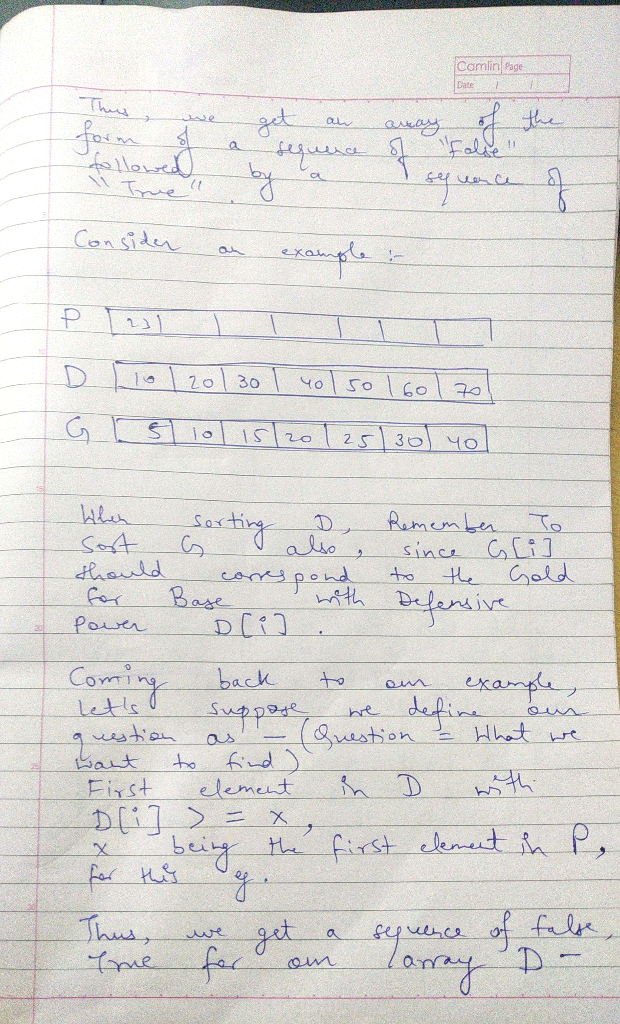 Camlin Page
Date / /
Thus, we get an array of the
form of a sequence of "False"
followed by a sequence of
"True".
Consider an example :-
P 23
D 10 20 30 40 50 60 70
G 5 10 15 20 25 30 40
When sorting D, Remember To
Sort G also, since G[i]
should correspond to the Gold
for Base with Defensive
Power D[i].
Coming back to our example,
let's suppose we define our
question as - (Question = What we
want to find)
First element in D with
D[i] >= x,
x being the first element in P,
for this eg.
Thus, we get a sequence of false,
True for our array D -